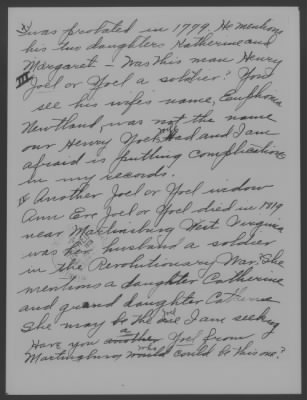 was probated in 1779. He mentions
his two daughters Katherine and
Margaret - Was this man Henry
III Joel or Yoel a soldier? You
see his wife's name, Euphona
Newtland, was not the name
our Henry Yoel's had and I am
afraid is putting complications
in my records.
IV Another Joel or Yoel widow
Ann Eve Joel or Yoel died in 1819
near Martinsburg West Virginia
was her husband a soldier
in the Revolutionary War? She
mentions a daughter Catherine
and grand daughter Catherine
She may be the one I am seeking
Have you another Yoel from
Martinsburg who could be this one?